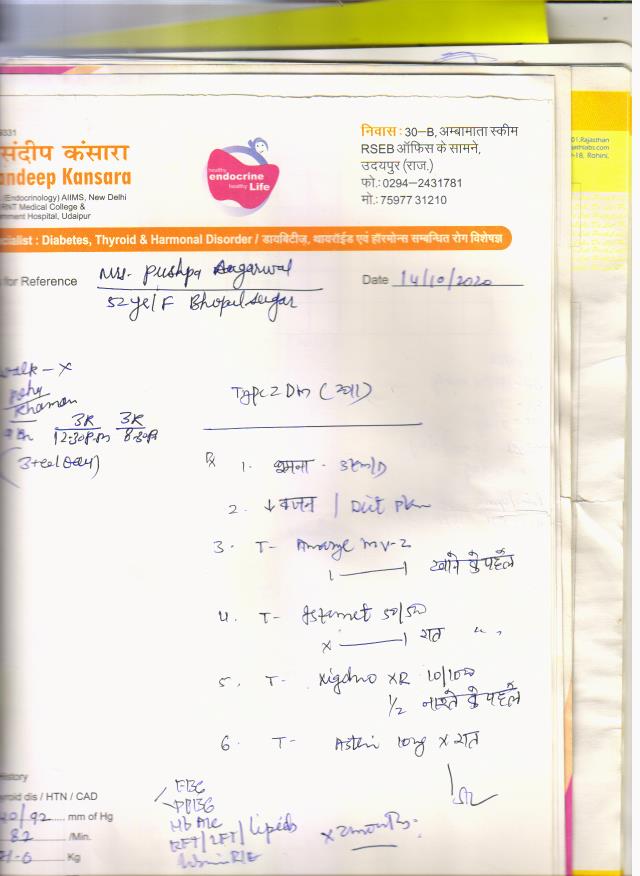 9331
संदीप कंसारा
andeep Kansara
(Endocrinology) AIIMS, New Delhi
RNT Medical College &
rnment Hospital, Udaipur
healthy
endocrine
healthy Life
निवास : 30-B, अम्बामाता स्कीम
RSEB ऑफिस के सामने,
उदयपुर (राज.)
फो.: 0294-2431781
मो.: 75977 31210
01,Rajasthan
-18, Rohini,
cialist : Diabetes, Thyroid & Harmonal Disorder / डायबिटीज़, थायरॉईड एवं हॉरमोन्स सम्बन्धित रोग विशेषज्ञ
s for Reference Mrs. Pushpa Aagarwal
Date 14/10/2020
52ye/F Bhopalsagar
walk - x
Khaman
3R 3R
12:30 P.m 8:30P
Type 2 DM
Rx 1. घूमना - 3km/D
2. ↓ वजन / Diet Plan
3. T- MV-2
1 — 1 खाने के पहले
4. T- Istamet 50/500
x — 1 रात " "
5. T- Xigduo XR 10/1000
1/2 नाश्ते के पहले
6. T- long x रात
History
yroid dis / HTN / CAD
/92 mm of Hg
82 /Min.
Kg
FBG
PPBG
Hb A1c
RFT/LFT/Lipids
Urine R/E
x 2 months.